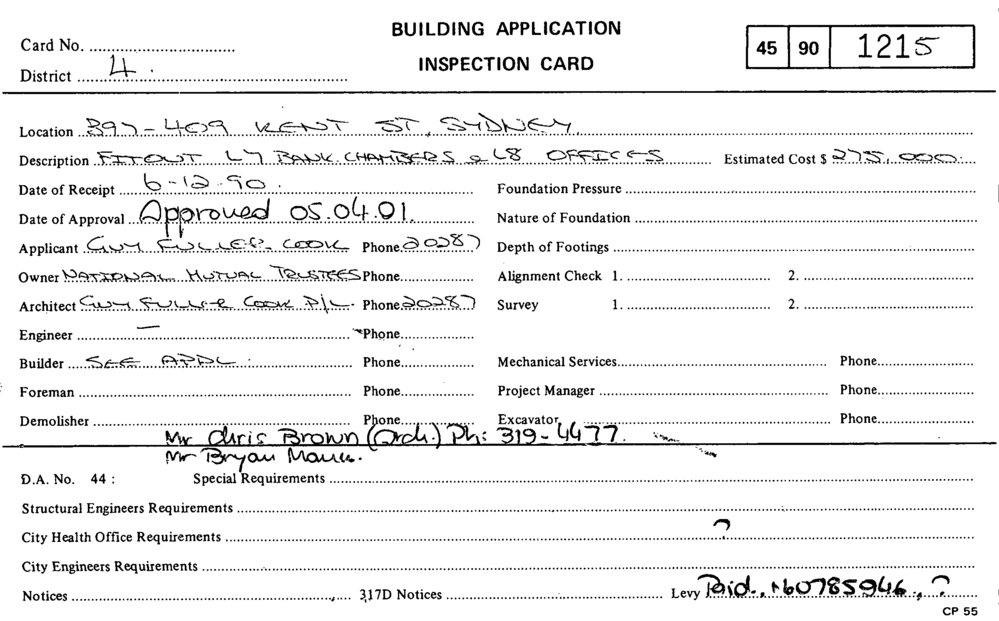 BUILDING APPLICATION
INSPECTION CARD
Card No.
District 4
45 90 1215
Location 397-409 KENT ST, SYDNEY.
Description FITOUT L7 BANK CHAMBERS & L8 OFFICES Estimated Cost $ 275,000.
Date of Receipt 6-12-90. Foundation Pressure
Date of Approval Approved 05.04.01. Nature of Foundation
Applicant GUY FULLER-COOK Phone 20287 Depth of Footings
Owner NATIONAL MUTUAL TRUSTEES Phone Alignment Check 1. 2.
Architect GUY FULLER COOK P/L. Phone 20287 Survey 1. 2.
Engineer — Phone
Builder SEE APPL. Phone Mechanical Services Phone
Foreman Phone Project Manager Phone
Demolisher Phone Excavator Phone
Mr Chris Brown (Arch.) Ph: 319-4477.
Mr Bryan
D.A. No. 44 : Special Requirements
Structural Engineers Requirements
City Health Office Requirements ?
City Engineers Requirements
Notices 317D Notices Levy Paid. ?
CP 55